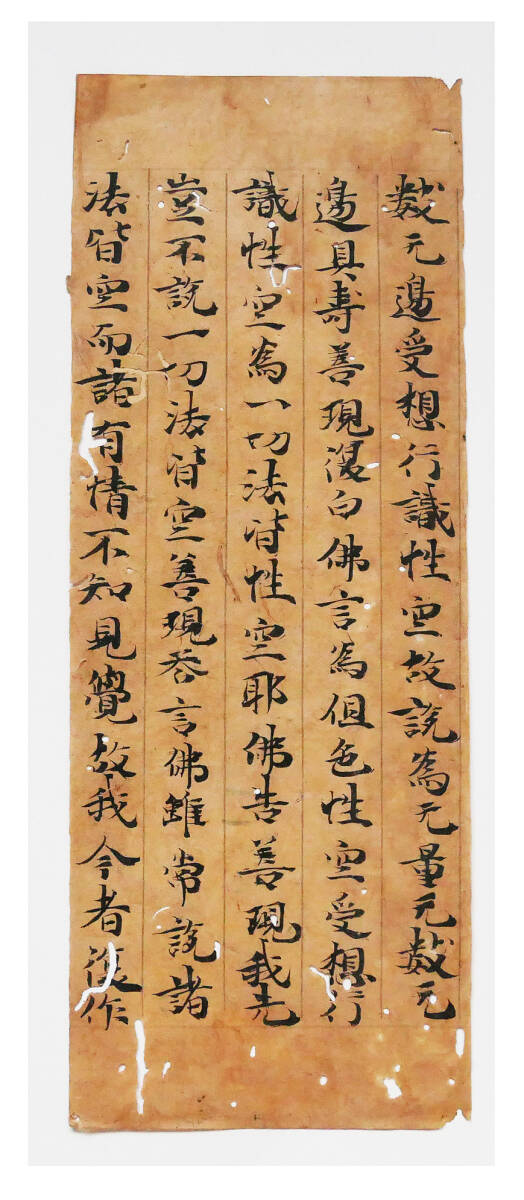 數无邊受想行識性空故說為无量无數无
邊具壽善現復白佛言為但色性空受想行
識性空為一切法皆性空耶佛告善現我先
豈不說一切法皆空善現荅言佛雖常說諸
法皆空而諸有情不知見覺故我今者復作